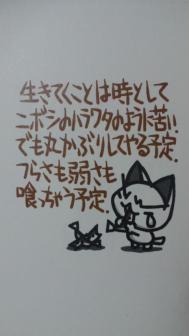 生きてくことは時として
ニボシのハラワタのように苦い
でも丸かぶりしてやる予定.
つらさも弱さも
喰っちゃう予定.